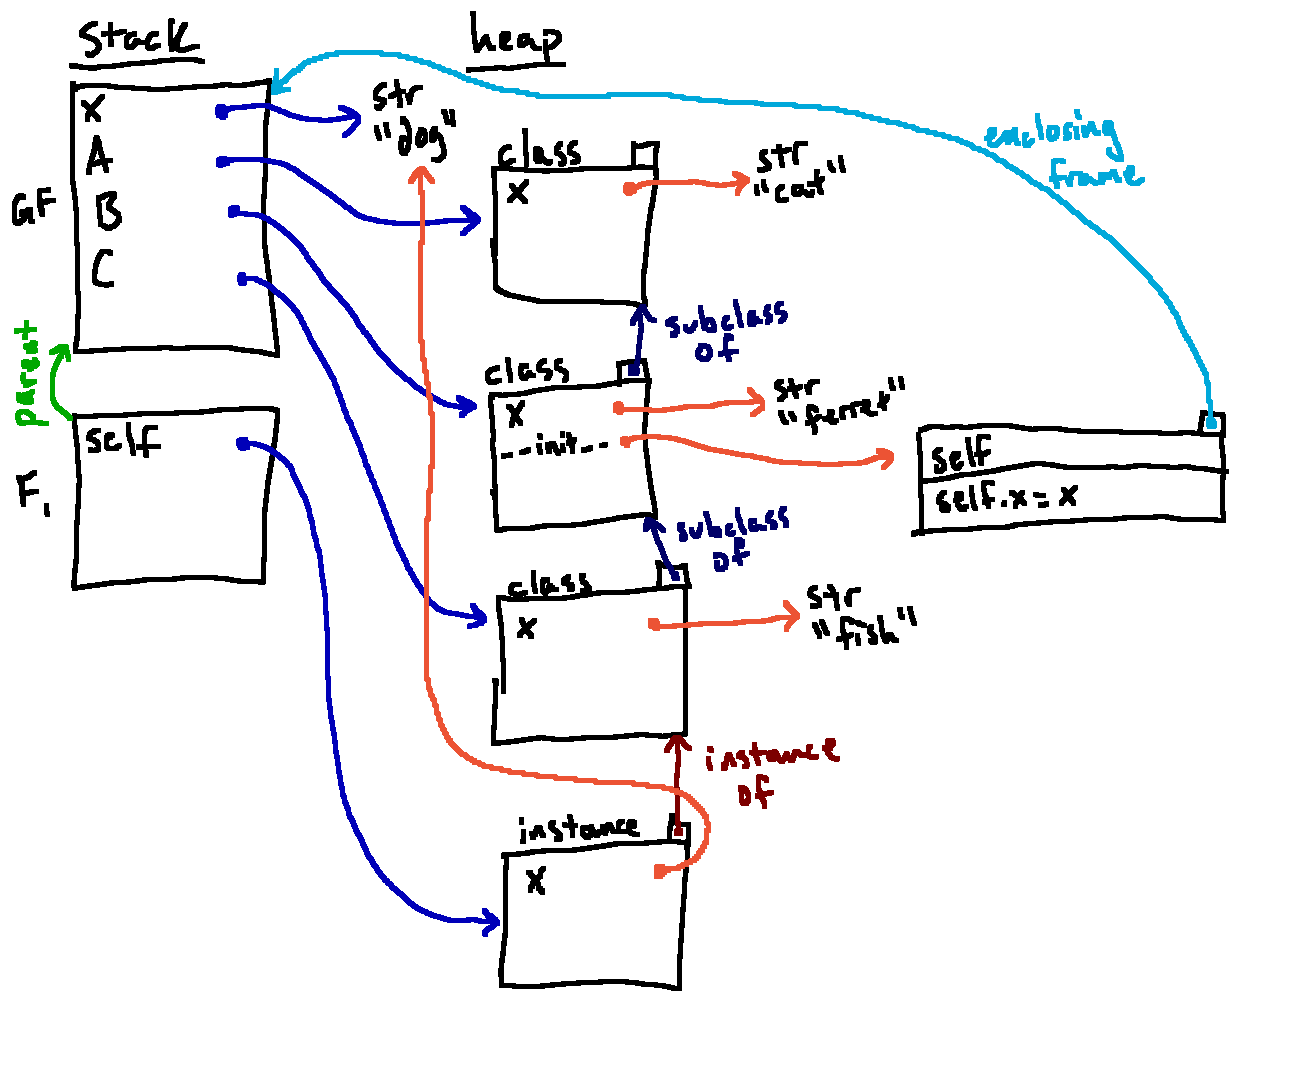 stack
heap
GF
x
A
B
C
str
"dog"
class
x
str
"cat"
enclosing
frame
subclass
of
parent
class
x
--init--
str
"ferret"
F1
self
self
self.x = x
subclass
of
class
x
str
"fish"
instance
of
instance
x